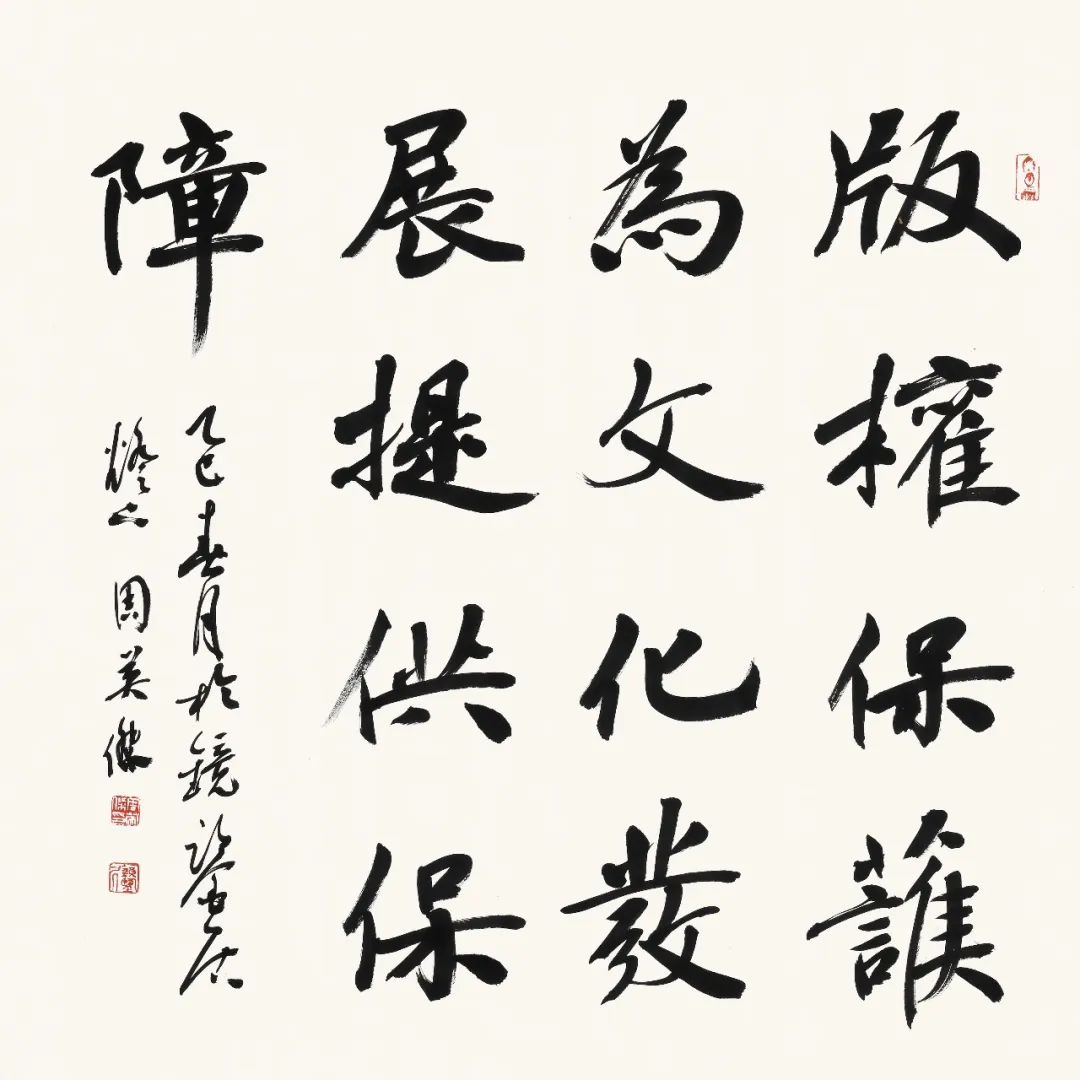 版權保護
為文化發
展提供保
障
乙巳春月於鏡
周英傑